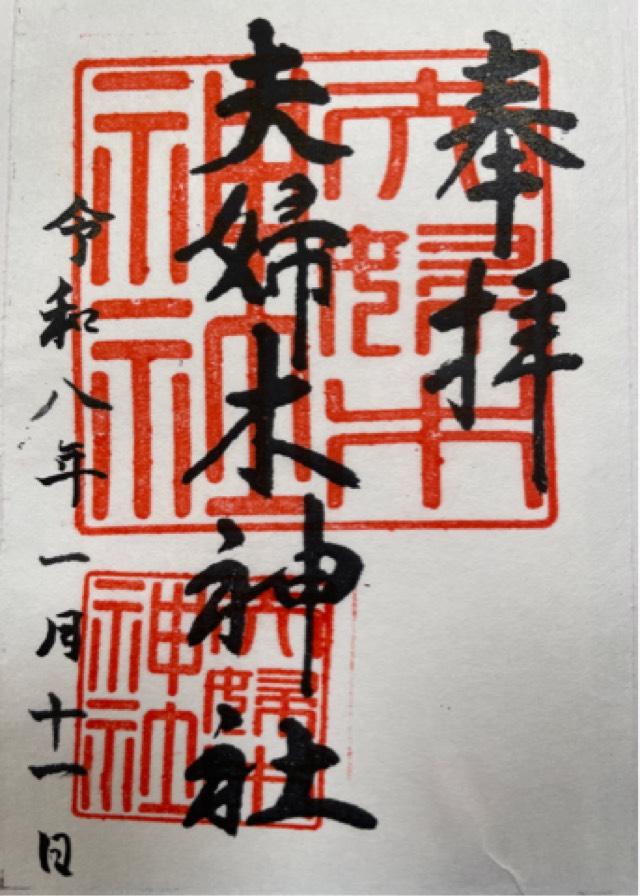 奉拝
夫婦木神社
令和八年一月十一日
夫婦木神社
夫婦木神社